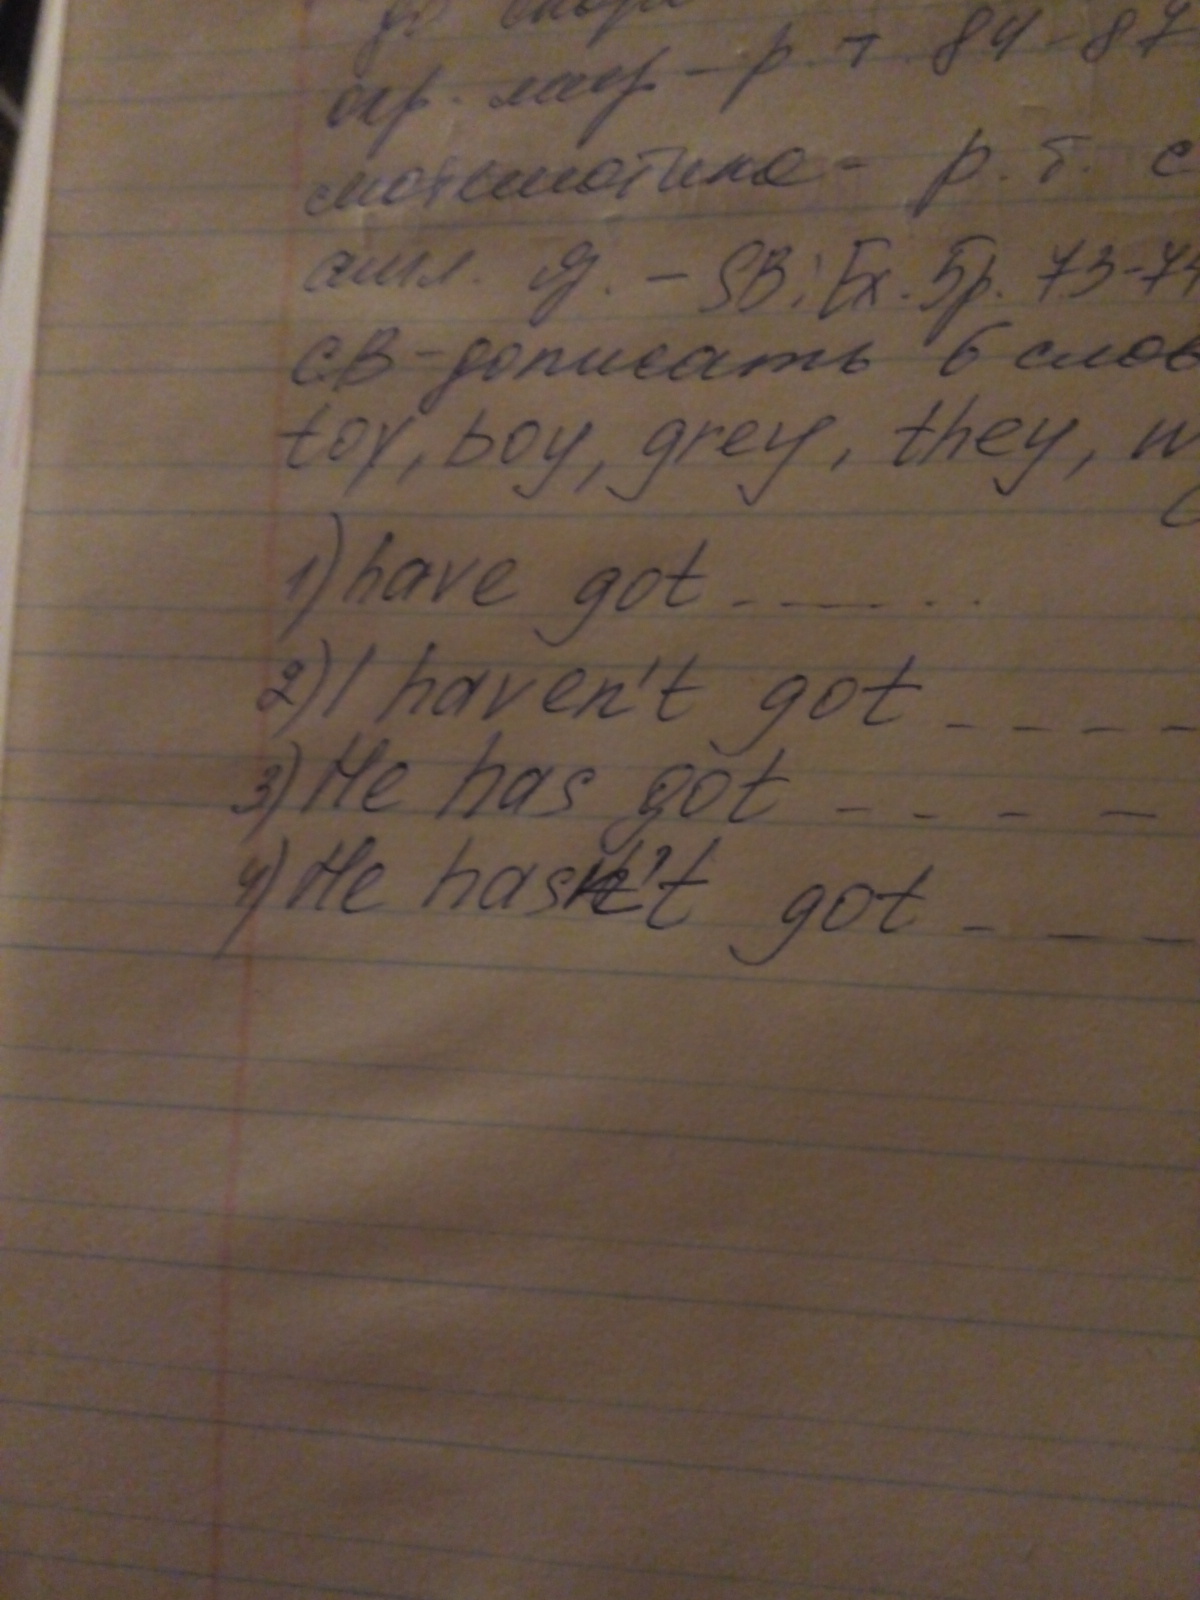 окр. мир - р. т. 84-87
математика - р. т. с
англ. я. - SB: Ex. 5 p. 73-74
СВ - дописать 6 слов
toy, boy, grey, they,
1) have got - - - - - -
2) I haven't got - - - -
3) He has got - - - -
4) He hasn't got - - -